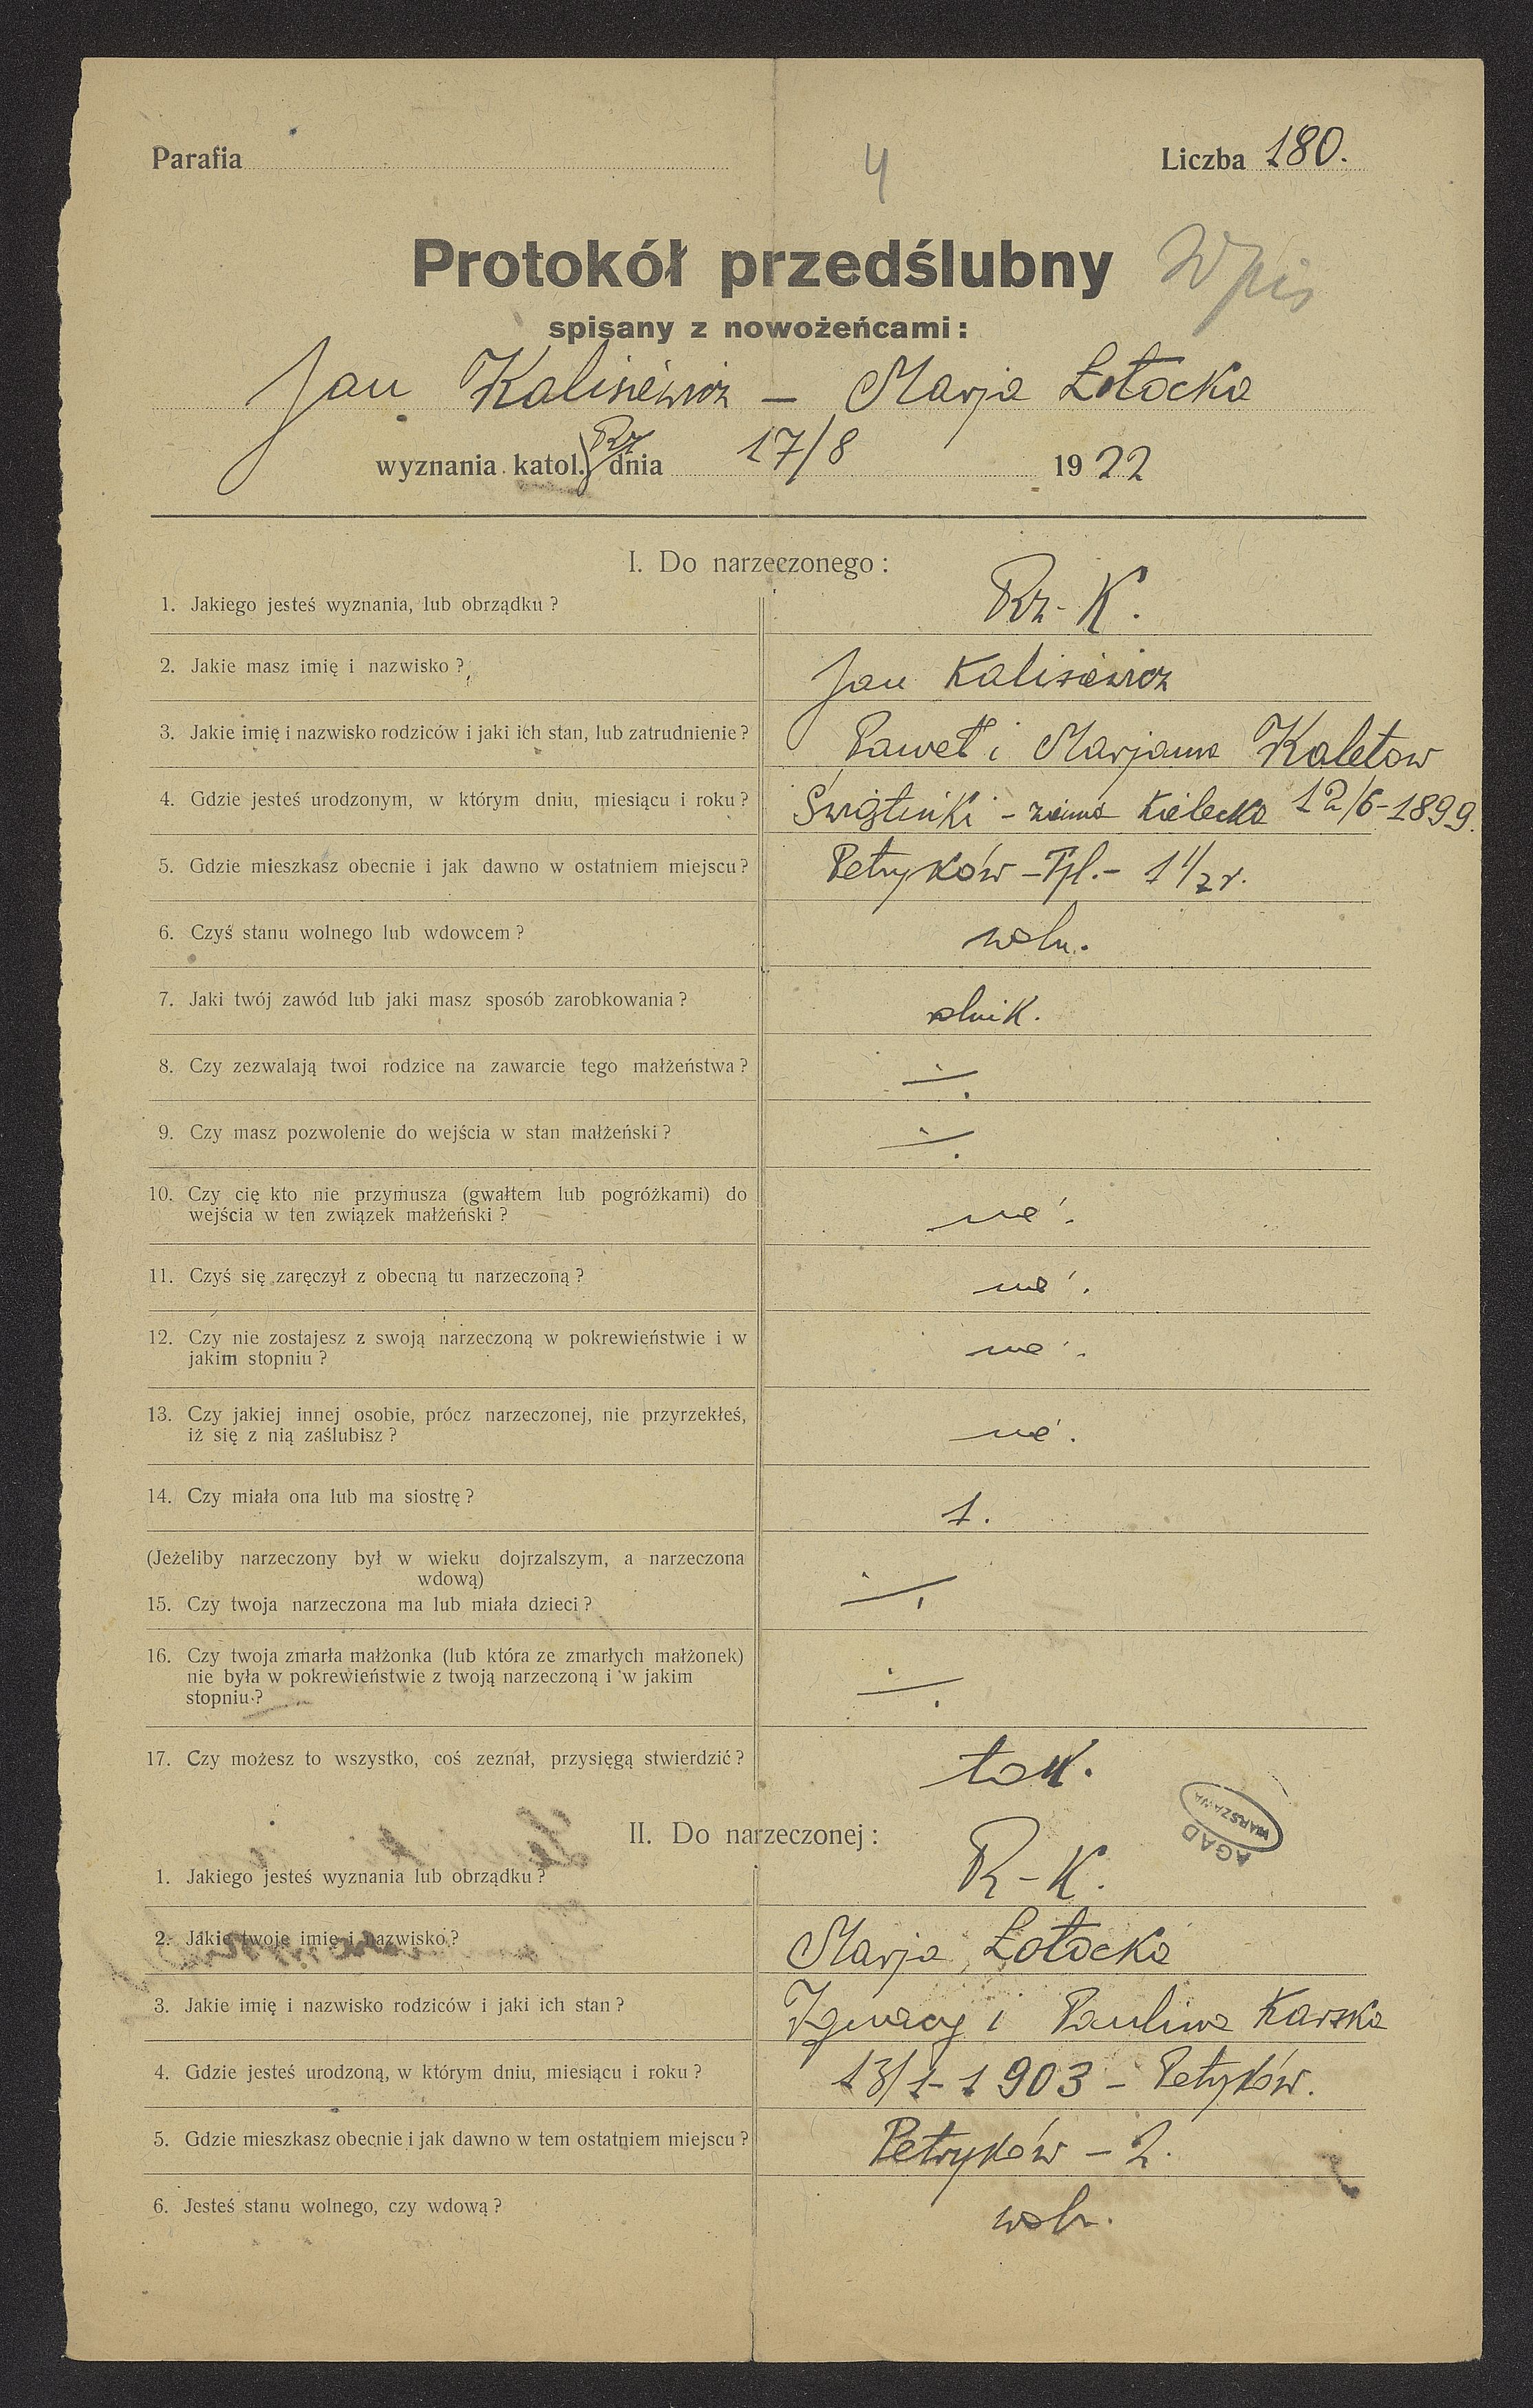 Parafia
Liczba 180.
4
Protokół przedślubny
Wpis
spisany z nowożeńcami:
Jan Kalisiewicz – Marja Łotocka
wyznania katol. Rz dnia 17/8 1922
I. Do narzeczonego:
1. Jakiego jesteś wyznania, lub obrządku? Rz-K.
2. Jakie masz imię i nazwisko? Jan Kalisiewicz
3. Jakie imię i nazwisko rodziców i jaki ich stan, lub zatrudnienie? Paweł i Marjanna Kaletow
4. Gdzie jesteś urodzonym, w którym dniu, miesiącu i roku? – ziemia Kielecka 12/6-1899.
5. Gdzie mieszkasz obecnie i jak dawno w ostatniem miejscu? Petryków – Tpl. – 1 1/2 r.
6. Czyś stanu wolnego lub wdowcem? woln.
7. Jaki twój zawód lub jaki masz sposób zarobkowania? rolnik.
8. Czy zezwalają twoi rodzice na zawarcie tego małżeństwa? ÷
9. Czy masz pozwolenie do wejścia w stan małżeński? ÷
10. Czy cię kto nie przymusza (gwałtem lub pogróżkami) do
wejścia w ten związek małżeński? nie.
11. Czyś się zaręczył z obecną tu narzeczoną? nie.
12. Czy nie zostajesz z swoją narzeczoną w pokrewieństwie i w
jakim stopniu? nie.
13. Czy jakiej innej osobie, prócz narzeczonej, nie przyrzekłeś,
iż się z nią zaślubisz? nie.
14. Czy miała ona lub ma siostrę? 1.
(Jeżeliby narzeczony był w wieku dojrzalszym, a narzeczona
wdową)
15. Czy twoja narzeczona ma lub miała dzieci? ÷
16. Czy twoja zmarła małżonka (lub która ze zmarłych małżonek)
nie była w pokrewieństwie z twoją narzeczoną i w jakim
stopniu? ÷
17. Czy możesz to wszystko, coś zeznał, przysięgą stwierdzić? tak.
AGAD
WARSZAWA
II. Do narzeczonej:
1. Jakiego jesteś wyznania lub obrządku? Rz-K.
2. Jakie twoje imię i nazwisko? Marja Łotocka
3. Jakie imię i nazwisko rodziców i jaki ich stan? Ignacy i Paulina Karska
4. Gdzie jesteś urodzoną, w którym dniu, miesiącu i roku? 13/1-1903 – Petryków.
5. Gdzie mieszkasz obecnie i jak dawno w tem ostatniem miejscu? Petryków – 2.
6. Jesteś stanu wolnego, czy wdową? woln.